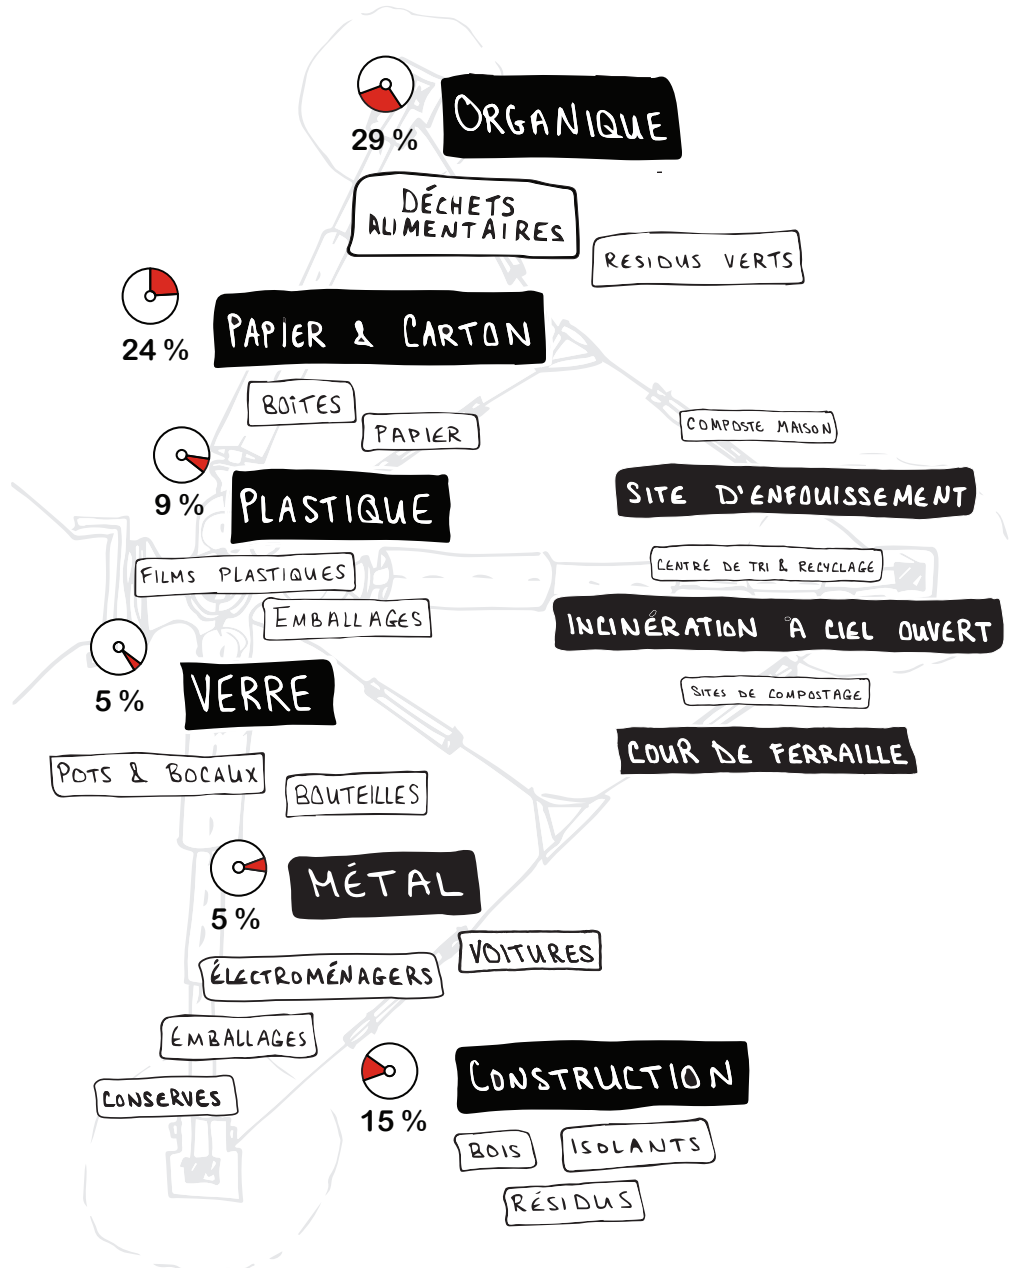 29 %
ORGANIQUE
DÉCHETS
ALIMENTAIRES
RESIDUS VERTS
24 %
PAPIER & CARTON
BOITES
PAPIER
9 %
PLASTIQUE
FILMS PLASTIQUES
EMBALLAGES
5 %
VERRE
POTS & BOCAUX
BOUTEILLES
5 %
MÉTAL
VOITURES
ÉLECTROMÉNAGERS
EMBALLAGES
CONSERVES
15 %
CONSTRUCTION
BOIS
ISOLANTS
RÉSIDUS
COMPOSTE MAISON
SITE D'ENFOUISSEMENT
CENTRE DE TRI & RECYCLAGE
INCINÉRATION À CIEL OUVERT
SITES DE COMPOSTAGE
COUR DE FERRAILLE